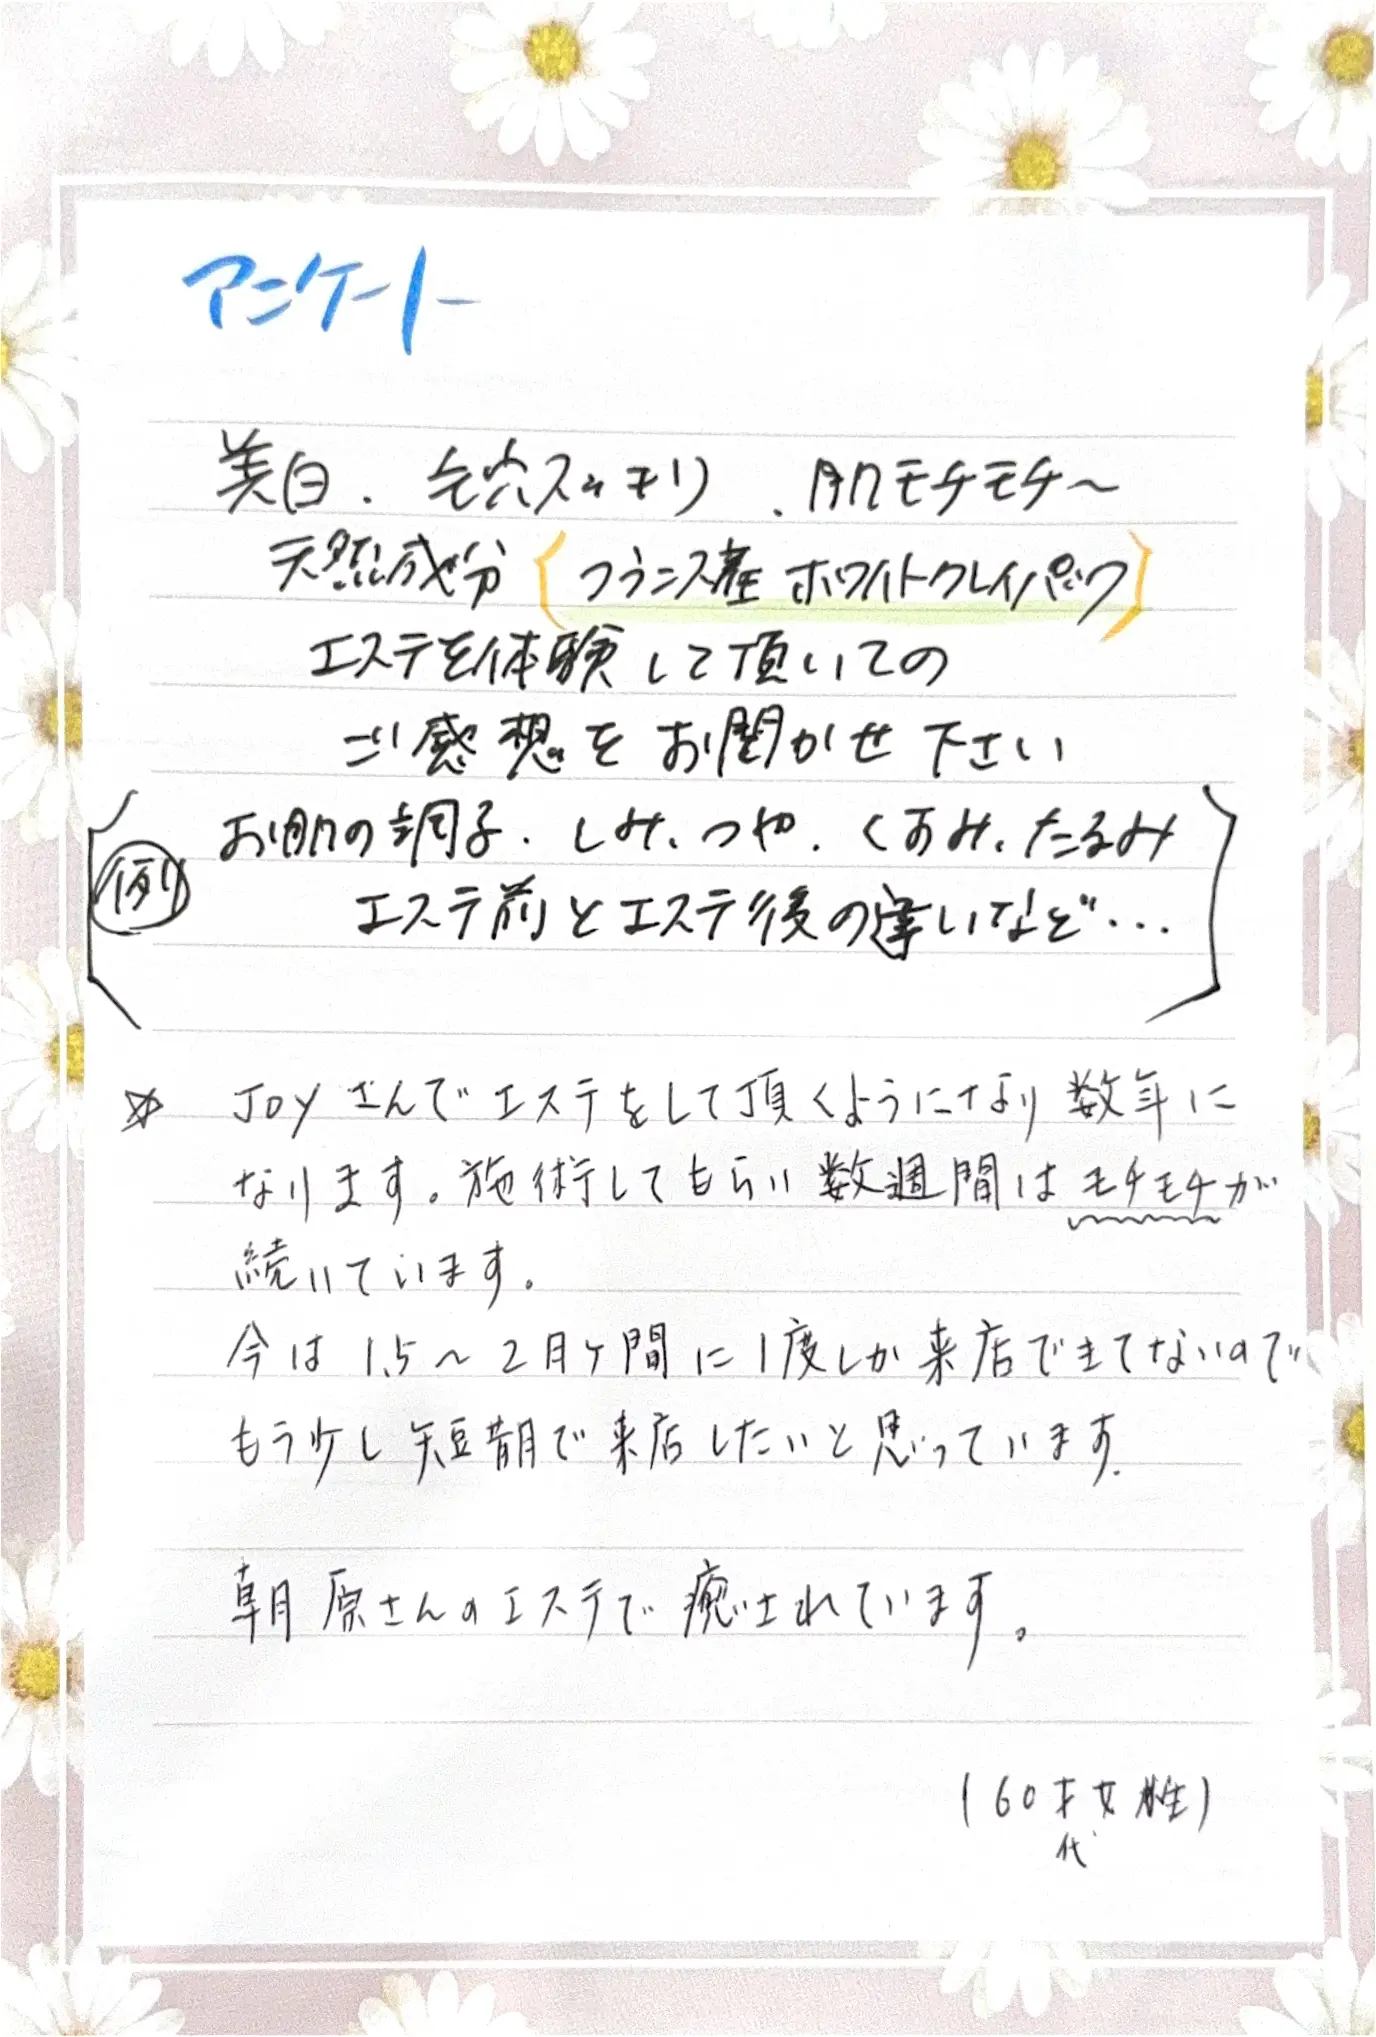 アンケート
美白、毛穴スッキリ、肌モチモチ〜
天然成分(フランス産 ホワイトクレイパック)
エステを体験して頂いての
ご感想をお聞かせ下さい
お肌の調子、しみ、つや、くすみ、たるみ
例
エステ前とエステ後の違いなど…
☆ JOYさんでエステをして頂くようになり数年に
なります。施術してもらい数週間はモチモチが
続いています。
今は1.5〜2月ヶ間に1度しか来店できてないので
もう少し短期で来店したいと思っています.
朝原さんのエステで癒されています。
(60才女性)
代